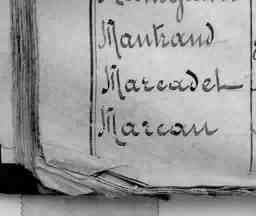 Mautrand
Marcadet
Marcau